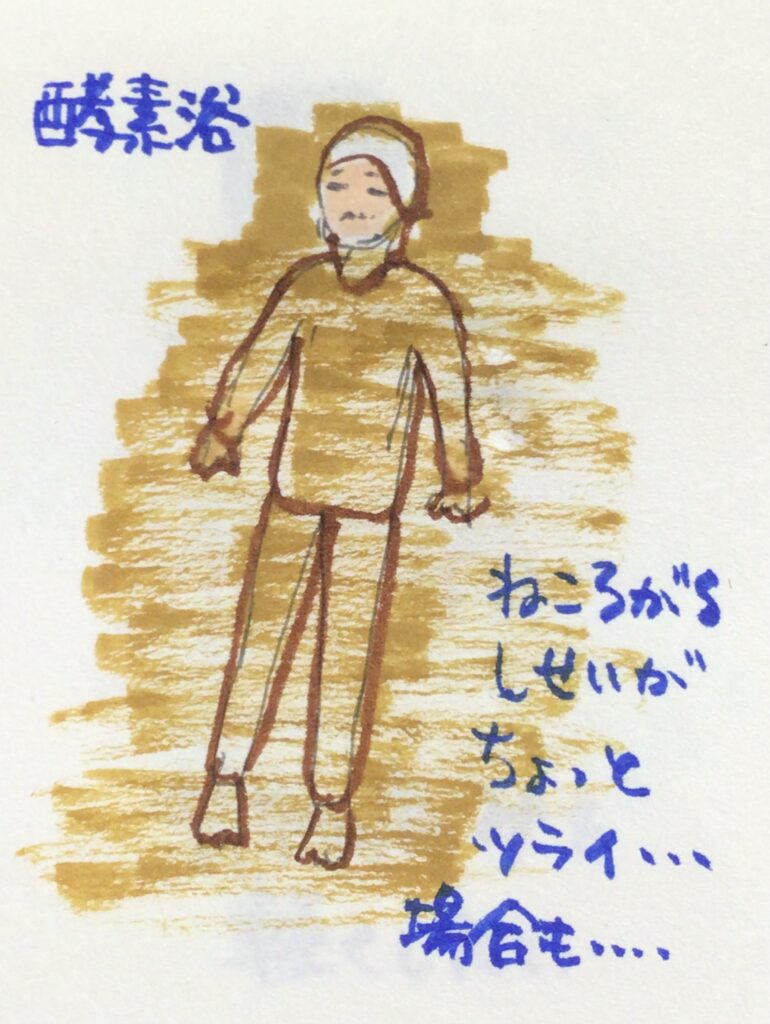 酵素浴
ねころがる
しせいが
ちょっと
ツライ・・・
場合も・・・・